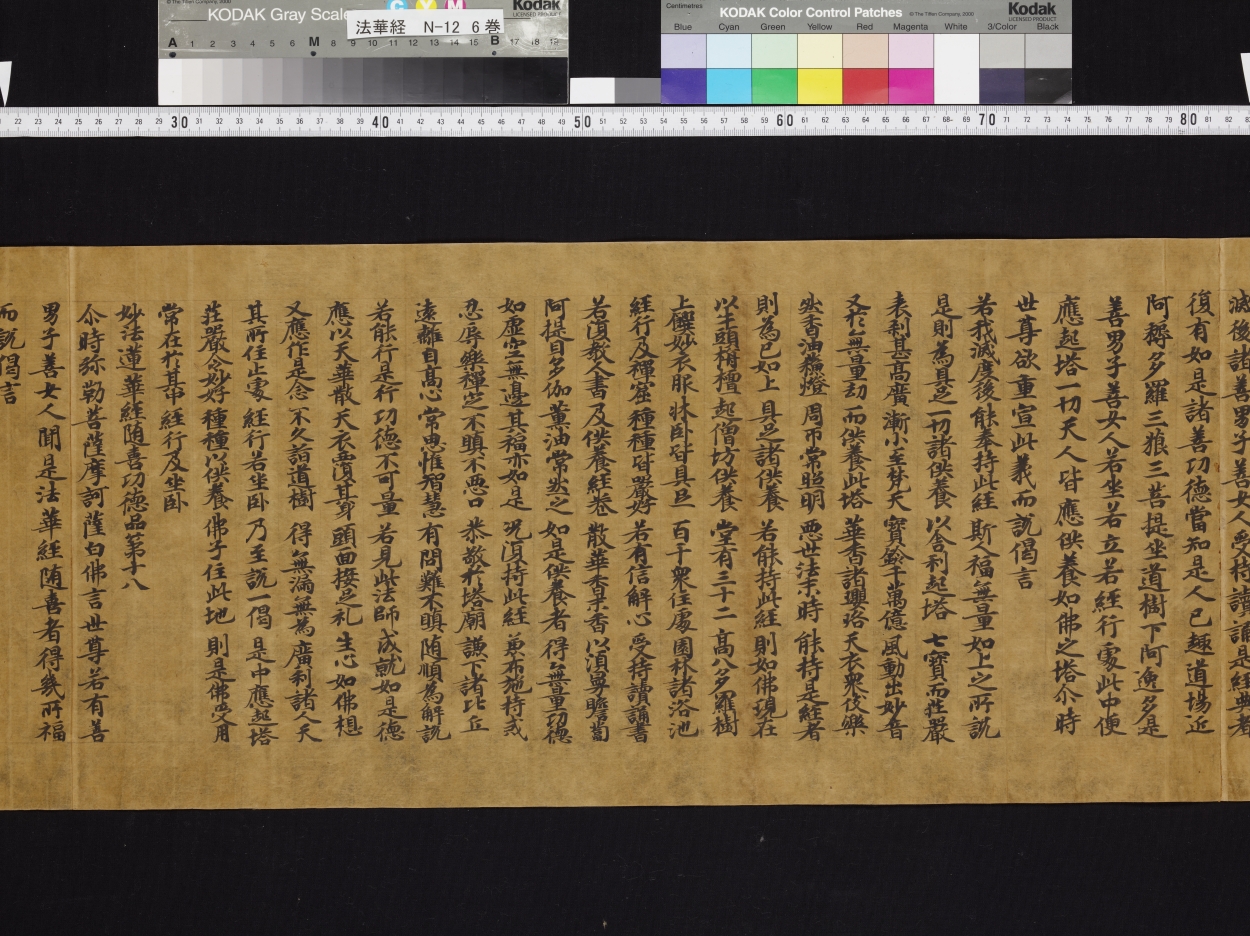 © The Tiffen Company, 2000
KODAK Gray Scale
C Y M
Kodak
LICENSED PRODUCT
法華経 N-12 6巻
A 1 2 3 4 5 6 M 8 9 10 11 12 13 14 15 B 17 18 19
Centimetres
KODAK Color Control Patches
© The Tiffen Company, 2000
Kodak
LICENSED PRODUCT
Blue Cyan Green Yellow Red Magenta White 3/Color Black
22 23 24 25 26 27 28 29 30 31 32 33 34 35 36 37 38 39 40 41 42 43 44 45 46 47 48 49 50 51 52 53 54 55 56 57 58 59 60 61 62 63 64 65 66 67 68 69 70 71 72 73 74 75 76 77 78 79 80 81 82
滅後諸善男子善女人受持讀誦是經典者
復有如是諸善功德當知是人已趣道場近
阿耨多羅三狼三菩提坐道樹下阿逸多是
善男子善女人若坐若立若經行處此中便
應起塔一切天人皆應供養如佛之塔尒時
世尊欲重宣此義而說偈言
若我滅度後 能奉持此經 斯人福無量 如上之所說
是則為具足 一切諸供養 以舍利起塔 七寶而莊嚴
表刹甚高廣 漸小至梵天 寶鈴千萬億 風動出妙音
又於無量劫 而供養此塔 華香諸瓔珞 天衣衆伎樂
然香油蘇燈 周帀常照明 惡世法末時 能持是經者
則為已如上 具足諸供養 若能持此經 則如佛現在
以牛頭栴檀 起僧坊供養 堂有三十二 高八多羅樹
上饌妙衣服 牀卧皆具足 百千衆住處 園林諸浴池
經行及禪窟 種種皆嚴好 若有信解心 受持讀誦書
若復教人書 及供養經卷 散華香末香 以湏曼瞻蔔
阿提目多伽 薰油常然之 如是供養者 得無量功德
如虛空無邊 其福亦如是 況復持此經 兼布施持戒
忍辱樂禪定 不瞋不惡口 恭敬於塔廟 謙下諸比丘
遠離自高心 常思惟智慧 有問難不瞋 随順為解說
若能行是行 功德不可量 若見此法師 成就如是德
應以天華散 天衣覆其身 頭面接足礼 生心如佛想
又應作是念 不久詣道樹 得無漏無為 廣利諸人天
其所住止處 經行若坐卧 乃至說一偈 是中應起塔
莊嚴令妙好 種種以供養 佛子住此地 則是佛受用
常在於其中 經行及坐卧
妙法蓮華經随喜功德品第十八
尒時弥勒菩薩摩訶薩白佛言世尊若有善
男子善女人聞是法華經随喜者得幾所福
而說偈言